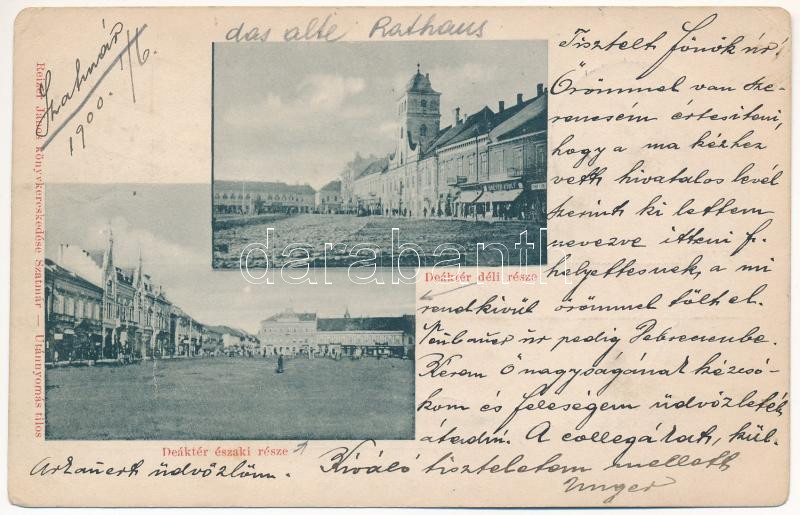 das alte Rathaus
Szatmár
1900. 1/6.
Reizer János könyvkereskedése Szatmár — Utánnyomás tilos
Deáktér déli része
Deáktér északi része
darabanth
Tisztelt főnök úr!
Örömmel van sze-
rencsém értesíteni,
hogy a ma kézhez
vett hivatalos levél
szerint ki lettem
nevezve itteni f.
helyettesnek, a mi
rendkívül örömmel tölt el.
Neubauer úr pedig Debrecenbe.
Kérem Ő nagyságának kézcsó-
kom és feleségem üdvözletét
átadni. A collegákat, kül-
üdvözlöm. Kiváló tisztelettem mellett
Unger